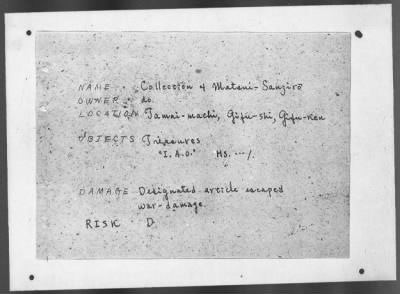 NAME Collection of Matani-Sanjirō
OWNER do.
LOCATION Tamai-machi, Gifu-shi, Gifu-ken
OBJECTS Treasures
"I.A.O." MS. ... 1.
DAMAGE Designated article escaped
war-damage.
RISK D